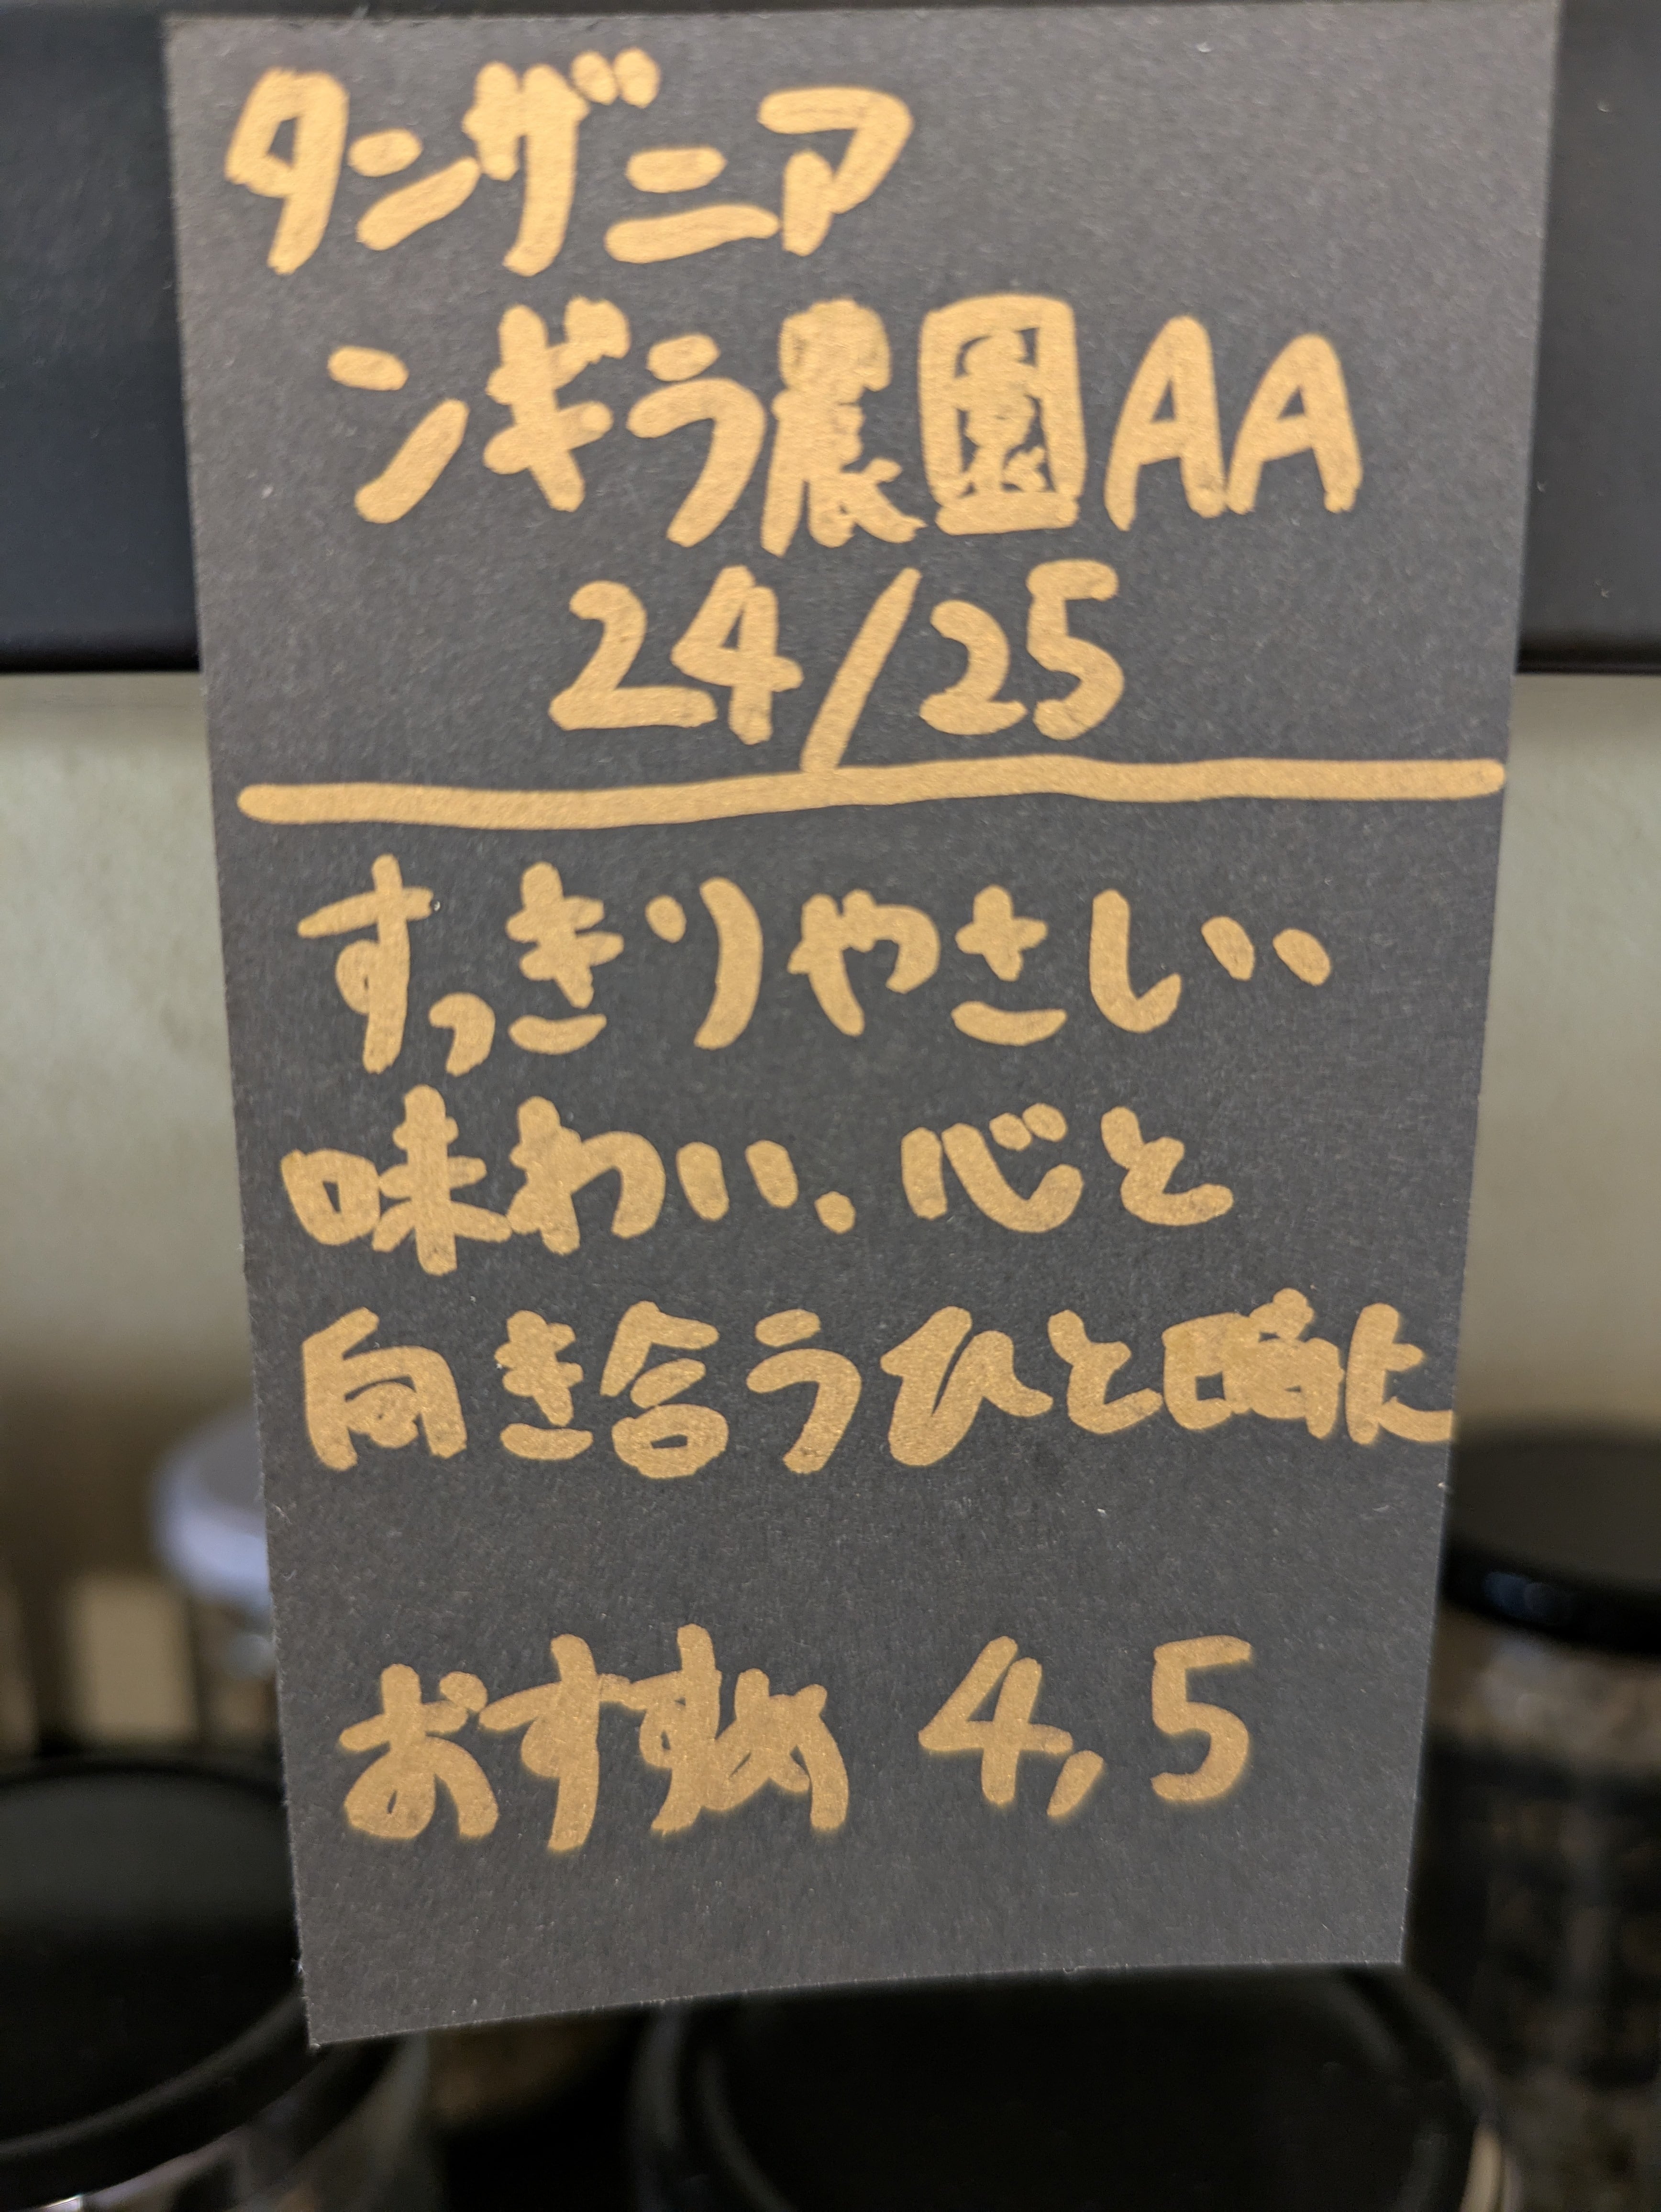 タンザニア
ンギラ農園AA
24/25
すっきりやさしい
味わい、心と
向き合うひと時に
おすすめ 4,5